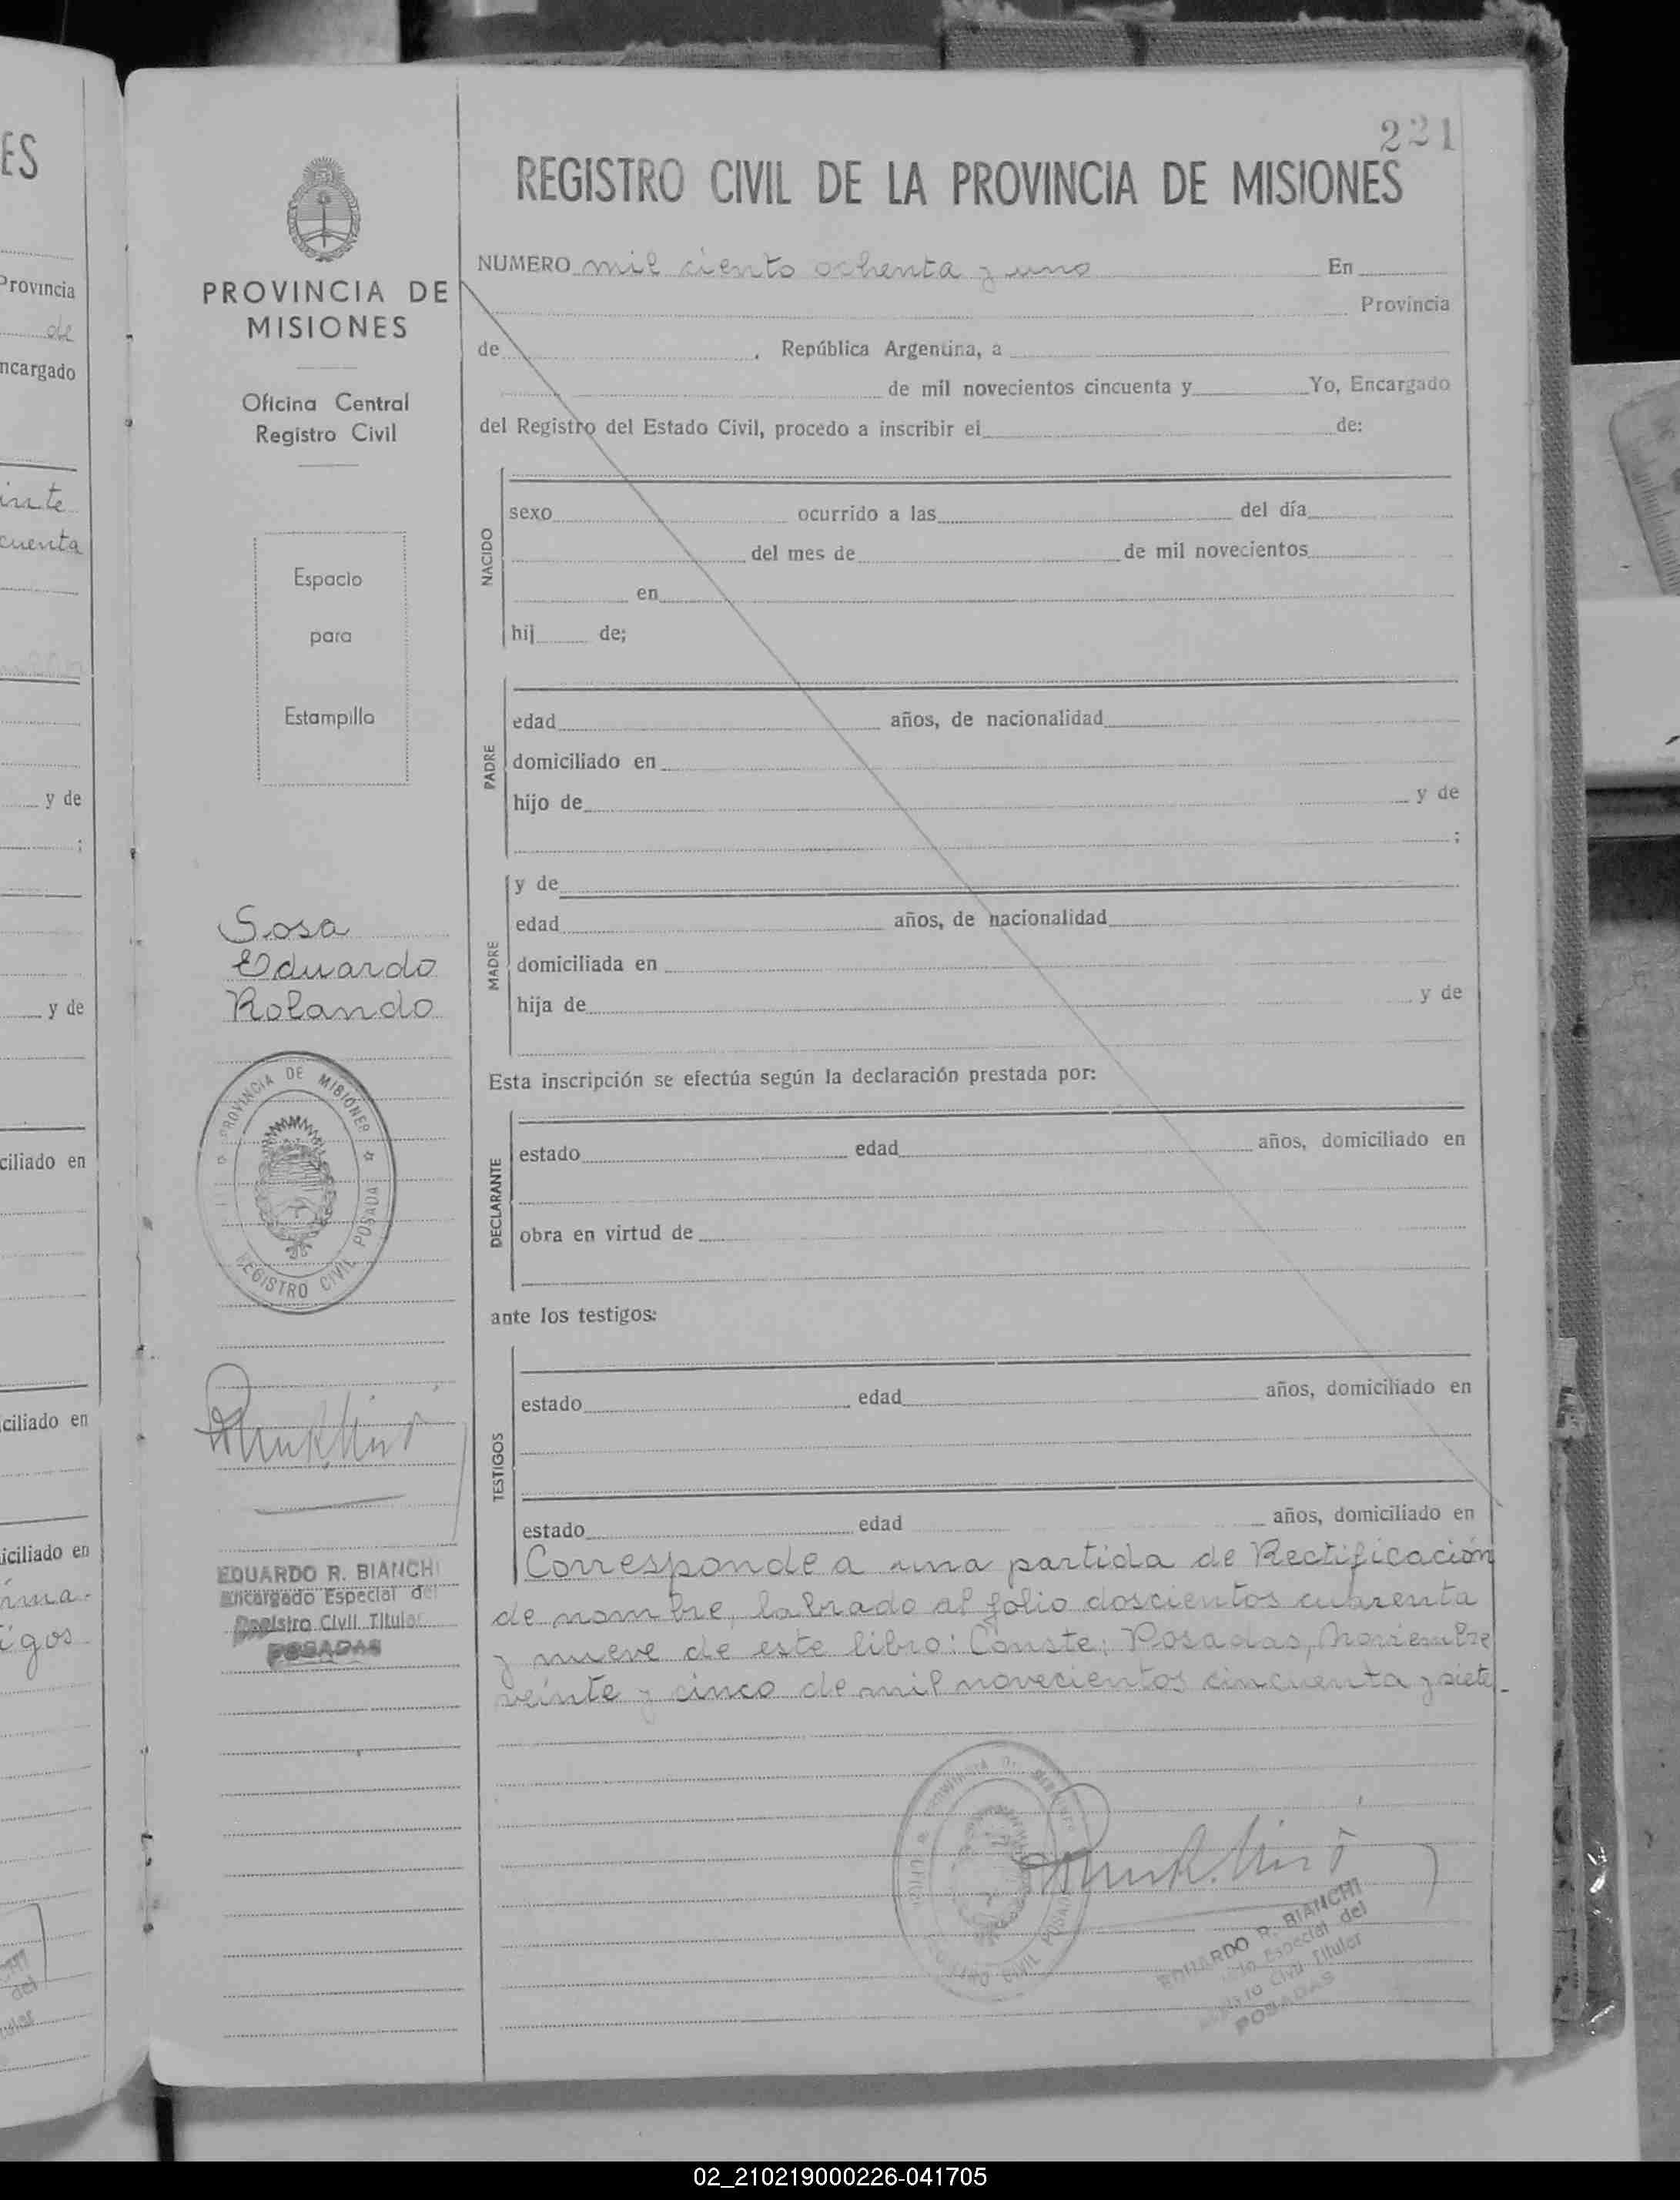 ES
Provincia
de
ncargado
inte
cuenta
y de
;
y de
ciliado en
ciliado en
iciliado en
igos
221
PROVINCIA DE
MISIONES
Oficina Central
Registro Civil
Espacio
para
Estampilla
Sosa
Eduardo
Rolando
PROVINCIA DE MISIONES
REGISTRO CIVIL POSADA
EDUARDO R. BIANCHI
Encargado Especial del
Registro Civil Titular
POSADAS
REGISTRO CIVIL DE LA PROVINCIA DE MISIONES
NUMERO mil ciento ochenta y uno En
Provincia
de , República Argentina, a
de mil novecientos cincuenta y Yo, Encargado
del Registro del Estado Civil, procedo a inscribir el de:
NACIDO
sexo ocurrido a las del día
del mes de de mil novecientos
en
hij de;
PADRE
edad años, de nacionalidad
domiciliado en
hijo de y de
;
MADRE
y de
edad años, de nacionalidad
domiciliada en
hija de y de
Esta inscripción se efectúa según la declaración prestada por:
DECLARANTE
estado edad años, domiciliado en
obra en virtud de
ante los testigos:
TESTIGOS
estado edad años, domiciliado en
estado edad años, domiciliado en
Corresponde a una partida de Rectificación
de nombre, labrado al folio doscientos cuarenta
y nueve de este libro: Conste; Posadas, Noviembre
veinte y cinco de mil novecientos cincuenta y siete.-
EDUARDO R. BIANCHI
Especial del
Civil Titular
POSADAS
02_210219000226-041705